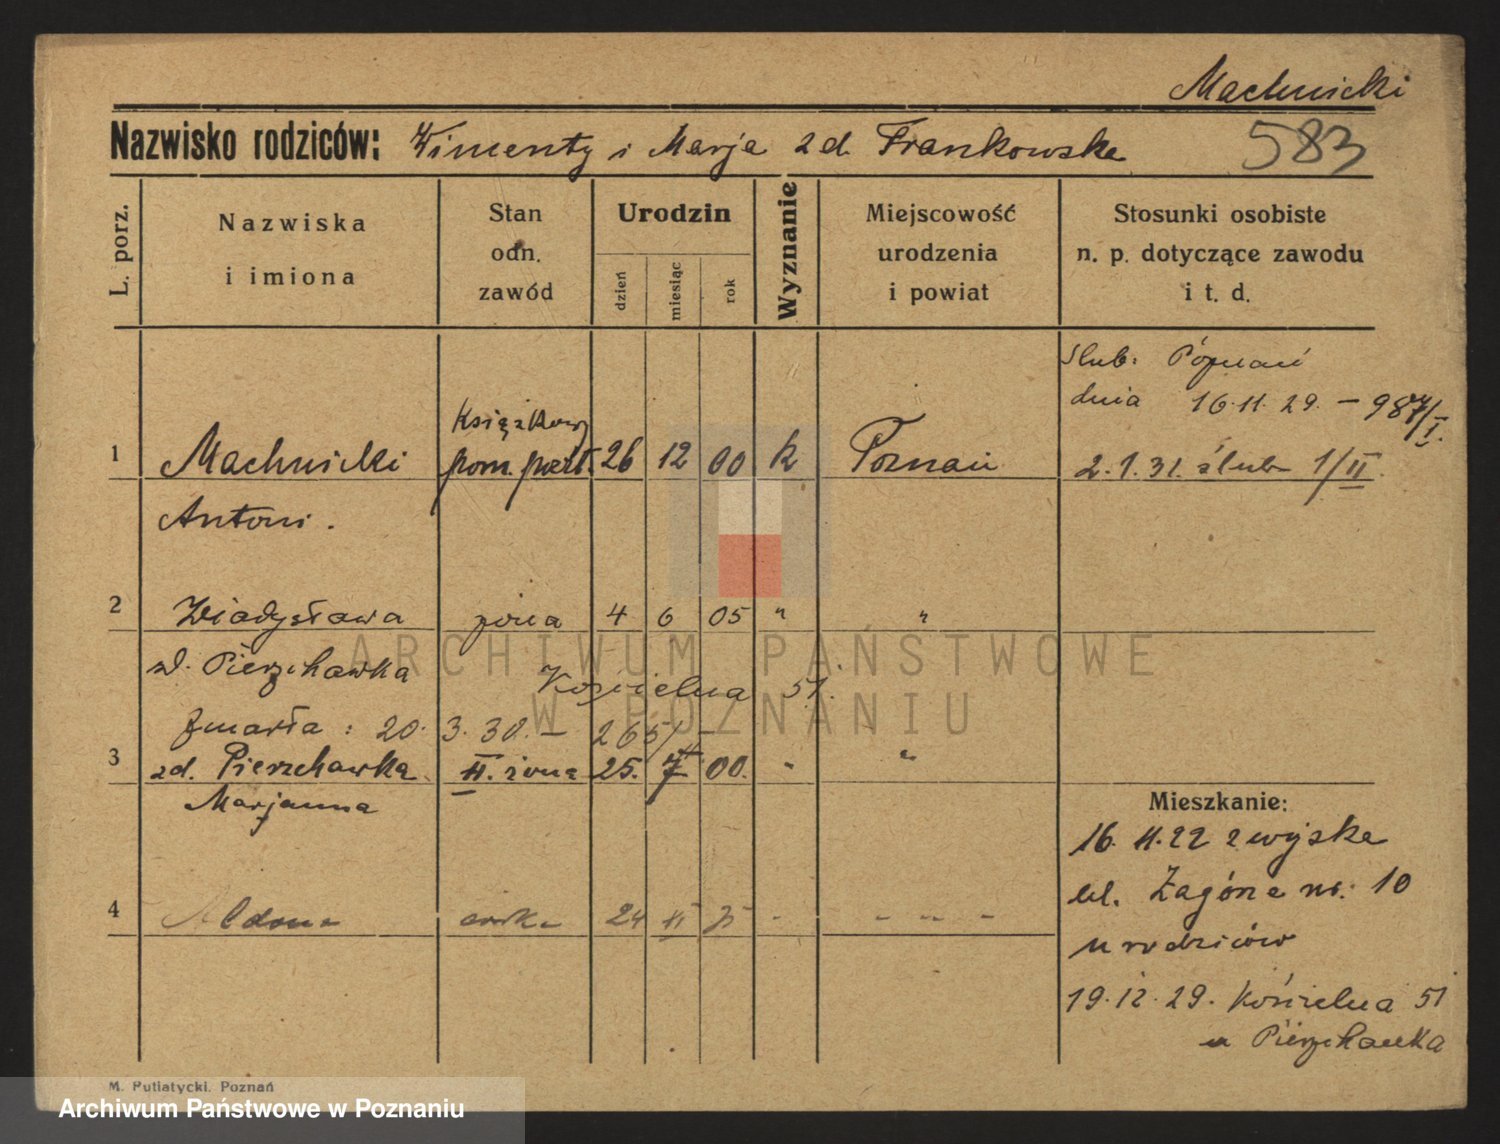 Machnicki
Nazwisko rodziców: Wincenty i Marja zd. Frankowska
583
L. porz.
Nazwiska i imiona
Stan odn. zawód
Urodzin
dzień miesiąc rok
Wyznanie
Miejscowość urodzenia i powiat
Stosunki osobiste n. p. dotyczące zawodu i t. d.
Ślub: Poznań
dnia 16.11.29. — 987/I.
Książkowy
1 Machnicki pom. poczt. 26 12 00 k Poznań 2.1.31. ślub 1/II
Antoni.
2 Władysława żona 4 6 05 " "
zd. Pierzchawka
Kościelna 51.
Zmarła: 20. 3. 30. — 265/II
3 zd. Pierzchawka II. żona 25. 7 00. " "
Marjanna
Mieszkanie:
16.11.22 z wojska
ul. Zagórze nr. 10
u rodziców
4 Aldona córka 24 II - - " -
19.12.29. Kościelna 51
u Pierzchawka
M. Putiatycki, Poznań
ARCHIWUM PAŃSTWOWE
W POZNANIU
Archiwum Państwowe w Poznaniu